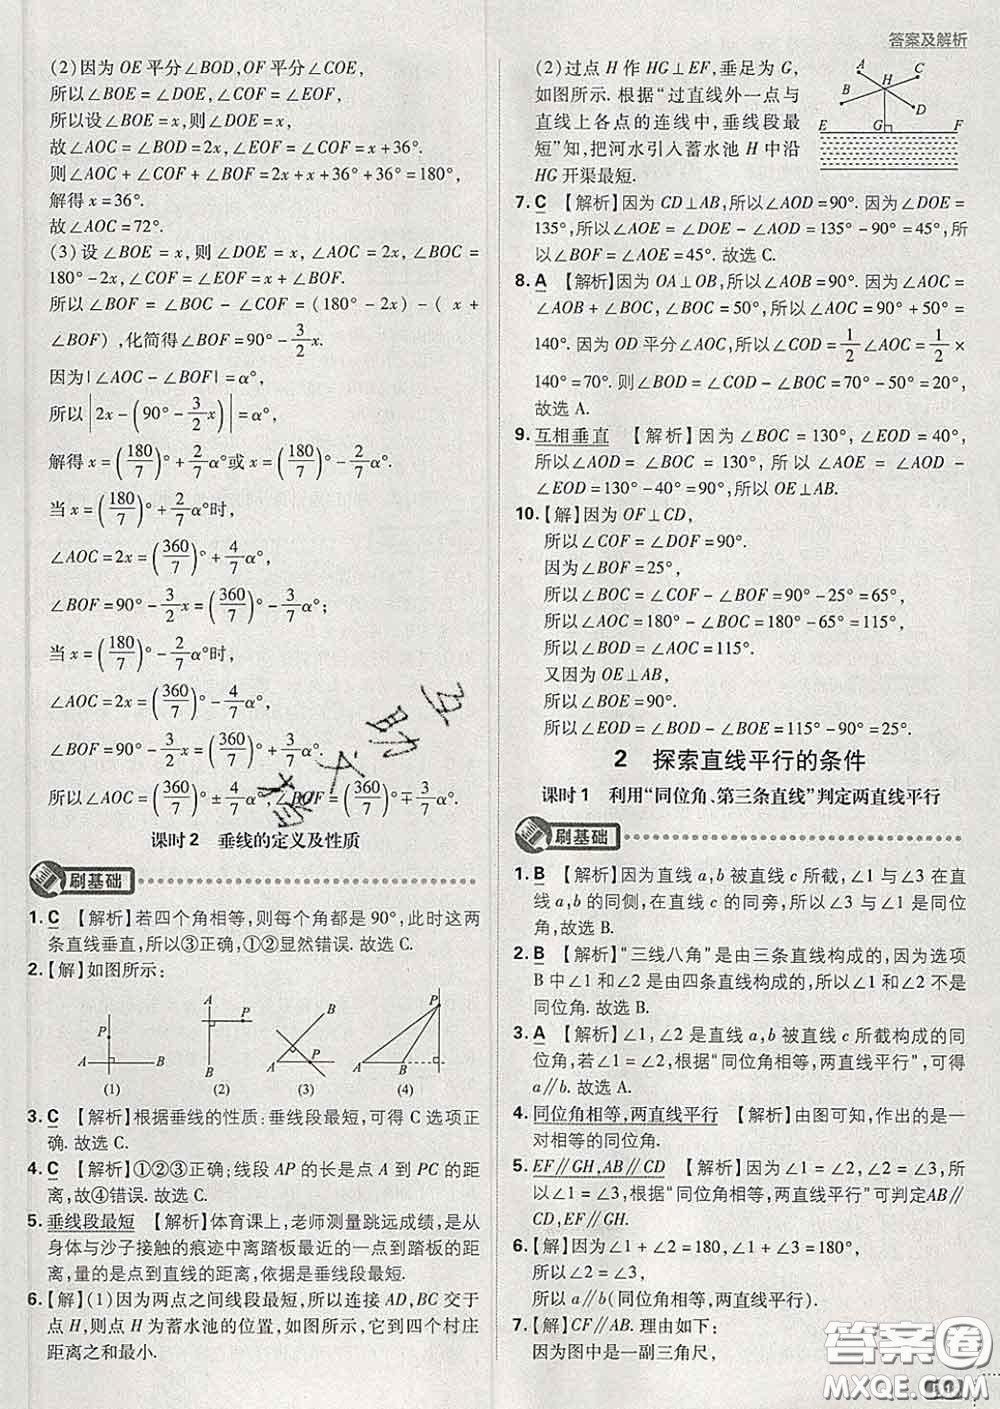 答案及解析
(2)因为 OE 平分∠BOD,OF 平分∠COE,
所以∠BOE=∠DOE,∠COF=∠EOF,
所以设∠BOE=x,则∠DOE=x,
故∠AOC=∠BOD=2x,∠EOF=∠COF=x+36°.
则∠AOC+∠COF+∠BOF=2x+x+36°+36°=180°,
解得 x=36°.
故∠AOC=72°.
(3)设∠BOE=x,则∠DOE=x,∠AOC=2x,∠BOC=
180°-2x,∠COF=∠EOF=x+∠BOF.
所以∠BOF=∠BOC-∠COF=(180°-2x)-(x+
∠BOF),化简得∠BOF=90°-3/2x.
因为|∠AOC-∠BOF|=α°,
所以|2x-(90°-3/2x)|=α°,
解得 x=(180/7)°+2/7α°或 x=(180/7)°-2/7α°.
当 x=(180/7)°+2/7α°时,
∠AOC=2x=(360/7)°+4/7α°,
∠BOF=90°-3/2x=(360/7)°-3/7α°;
当 x=(180/7)°-2/7α°时,
∠AOC=2x=(360/7)°-4/7α°,
∠BOF=90°-3/2x=(360/7)°+3/7α°.
所以∠AOC=(360/7)°±4/7α°,∠BOF=(360/7)°∓3/7α°.
课时2 垂线的定义及性质
刷基础
1. C 【解析】若四个角相等,则每个角都是 90°,此时这两
条直线垂直,所以③正确,①②显然错误. 故选 C.
2.【解】如图所示:
P A B (1)
A P B (2)
B A P (3)
P A B (4)
3. C 【解析】根据垂线的性质:垂线段最短,可得 C 选项正
确. 故选 C.
4. C 【解析】①②③正确;线段 AP 的长是点 A 到 PC 的距
离,故④错误. 故选 C.
5. 垂线段最短 【解析】体育课上,老师测量跳远成绩,是从
身体与沙子接触的痕迹中离踏板最近的一点到踏板的距
离,量的是点到直线的距离,依据是垂线段最短.
6.【解】(1)因为两点之间线段最短,所以连接 AD,BC 交于
点 H,则点 H 为蓄水池的位置,如图所示,它到四个村庄
距离之和最小.
(2)过点 H 作 HG⊥EF,垂足为 G,
如图所示. 根据“过直线外一点与
直线上各点的连线中,垂线段最
短”知,把河水引入蓄水池 H 中沿
HG 开渠最短.
A C H B D E G F
7. C 【解析】因为 CD⊥AB,所以∠AOD=90°. 因为∠DOE=
135°,所以∠AOE=∠DOE-∠AOD=135°-90°=45°,所
以∠BOF=∠AOE=45°. 故选 C.
8. A 【解析】因为 OA⊥OB,所以∠AOB=90°. 因为∠AOC=
∠AOB+∠BOC,∠BOC=50°,所以∠AOC=90°+50°=
140°. 因为 OD 平分∠AOC,所以∠COD=1/2∠AOC=1/2×
140°=70°. 则∠BOD=∠COD-∠BOC=70°-50°=20°,
故选 A.
9. 互相垂直 【解析】因为∠BOC=130°,∠EOD=40°,
所以∠AOD=∠BOC=130°,所以∠AOE=∠AOD-
∠EOD=130°-40°=90°,所以 OE⊥AB.
10.【解】因为 OF⊥CD,
所以∠COF=∠DOF=90°.
因为∠BOF=25°,
所以∠BOC=∠COF-∠BOF=90°-25°=65°,
所以∠AOC=180°-∠BOC=180°-65°=115°,
所以∠BOD=∠AOC=115°.
又因为 OE⊥AB,
所以∠BOE=90°.
所以∠EOD=∠BOD-∠BOE=115°-90°=25°.
2 探索直线平行的条件
课时1 利用“同位角、第三条直线”判定两直线平行
刷基础
1. B 【解析】因为直线 a,b 被直线 c 所截,∠1 与∠3 在直
线 a,b 的同侧,在直线 c 的同旁,所以∠1 与∠3 是同位
角,故选 B.
2. B 【解析】“三线八角”是由三条直线构成的,因为选项
B 中∠1 和∠2 是由四条直线构成的,所以∠1 和∠2 不是
同位角. 故选 B.
3. A 【解析】∠1,∠2 是直线 a,b 被直线 c 所截构成的同
位角,若∠1=∠2,根据“同位角相等,两直线平行”,可得
a∥b. 故选 A.
4. 同位角相等,两直线平行 【解析】由图可知,作出的是一
对相等的同位角.
5. EF∥GH,AB∥CD 【解析】因为∠1=∠2=∠3,所
以∠1=∠3,根据“同位角相等,两直线平行”可判定AB∥
CD,EF∥GH.
6.【解】因为∠1+∠2=180,∠1+∠3=180°,
所以∠2=∠3,
所以 a∥b(同位角相等,两直线平行).
7.【解】CF∥AB. 理由如下:
因为图中是一副三角尺,
作业帮
答案圈
MXQE.COM